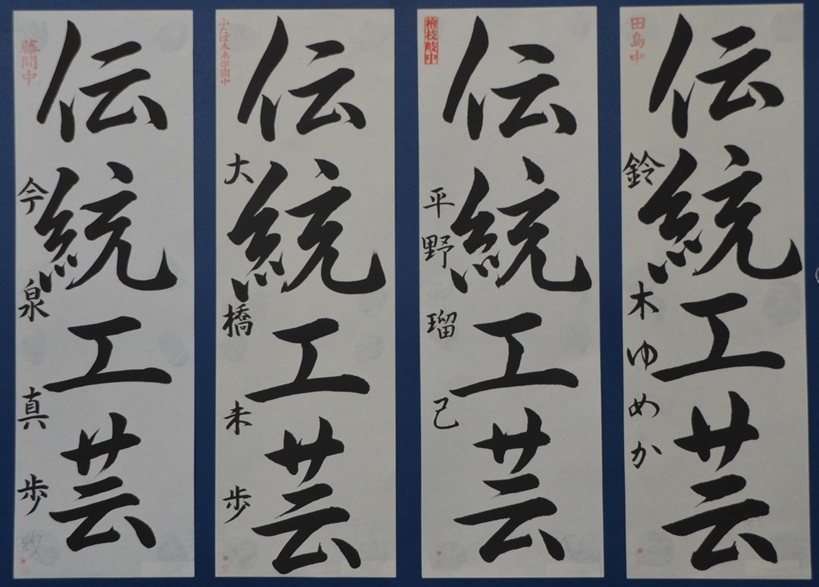 田島中
伝統工芸
鈴木ゆめか
檜枝岐中
伝統工芸
平野瑠己
ふたば未来学園中
伝統工芸
大橋未歩
藤間中
伝統工芸
今泉真歩